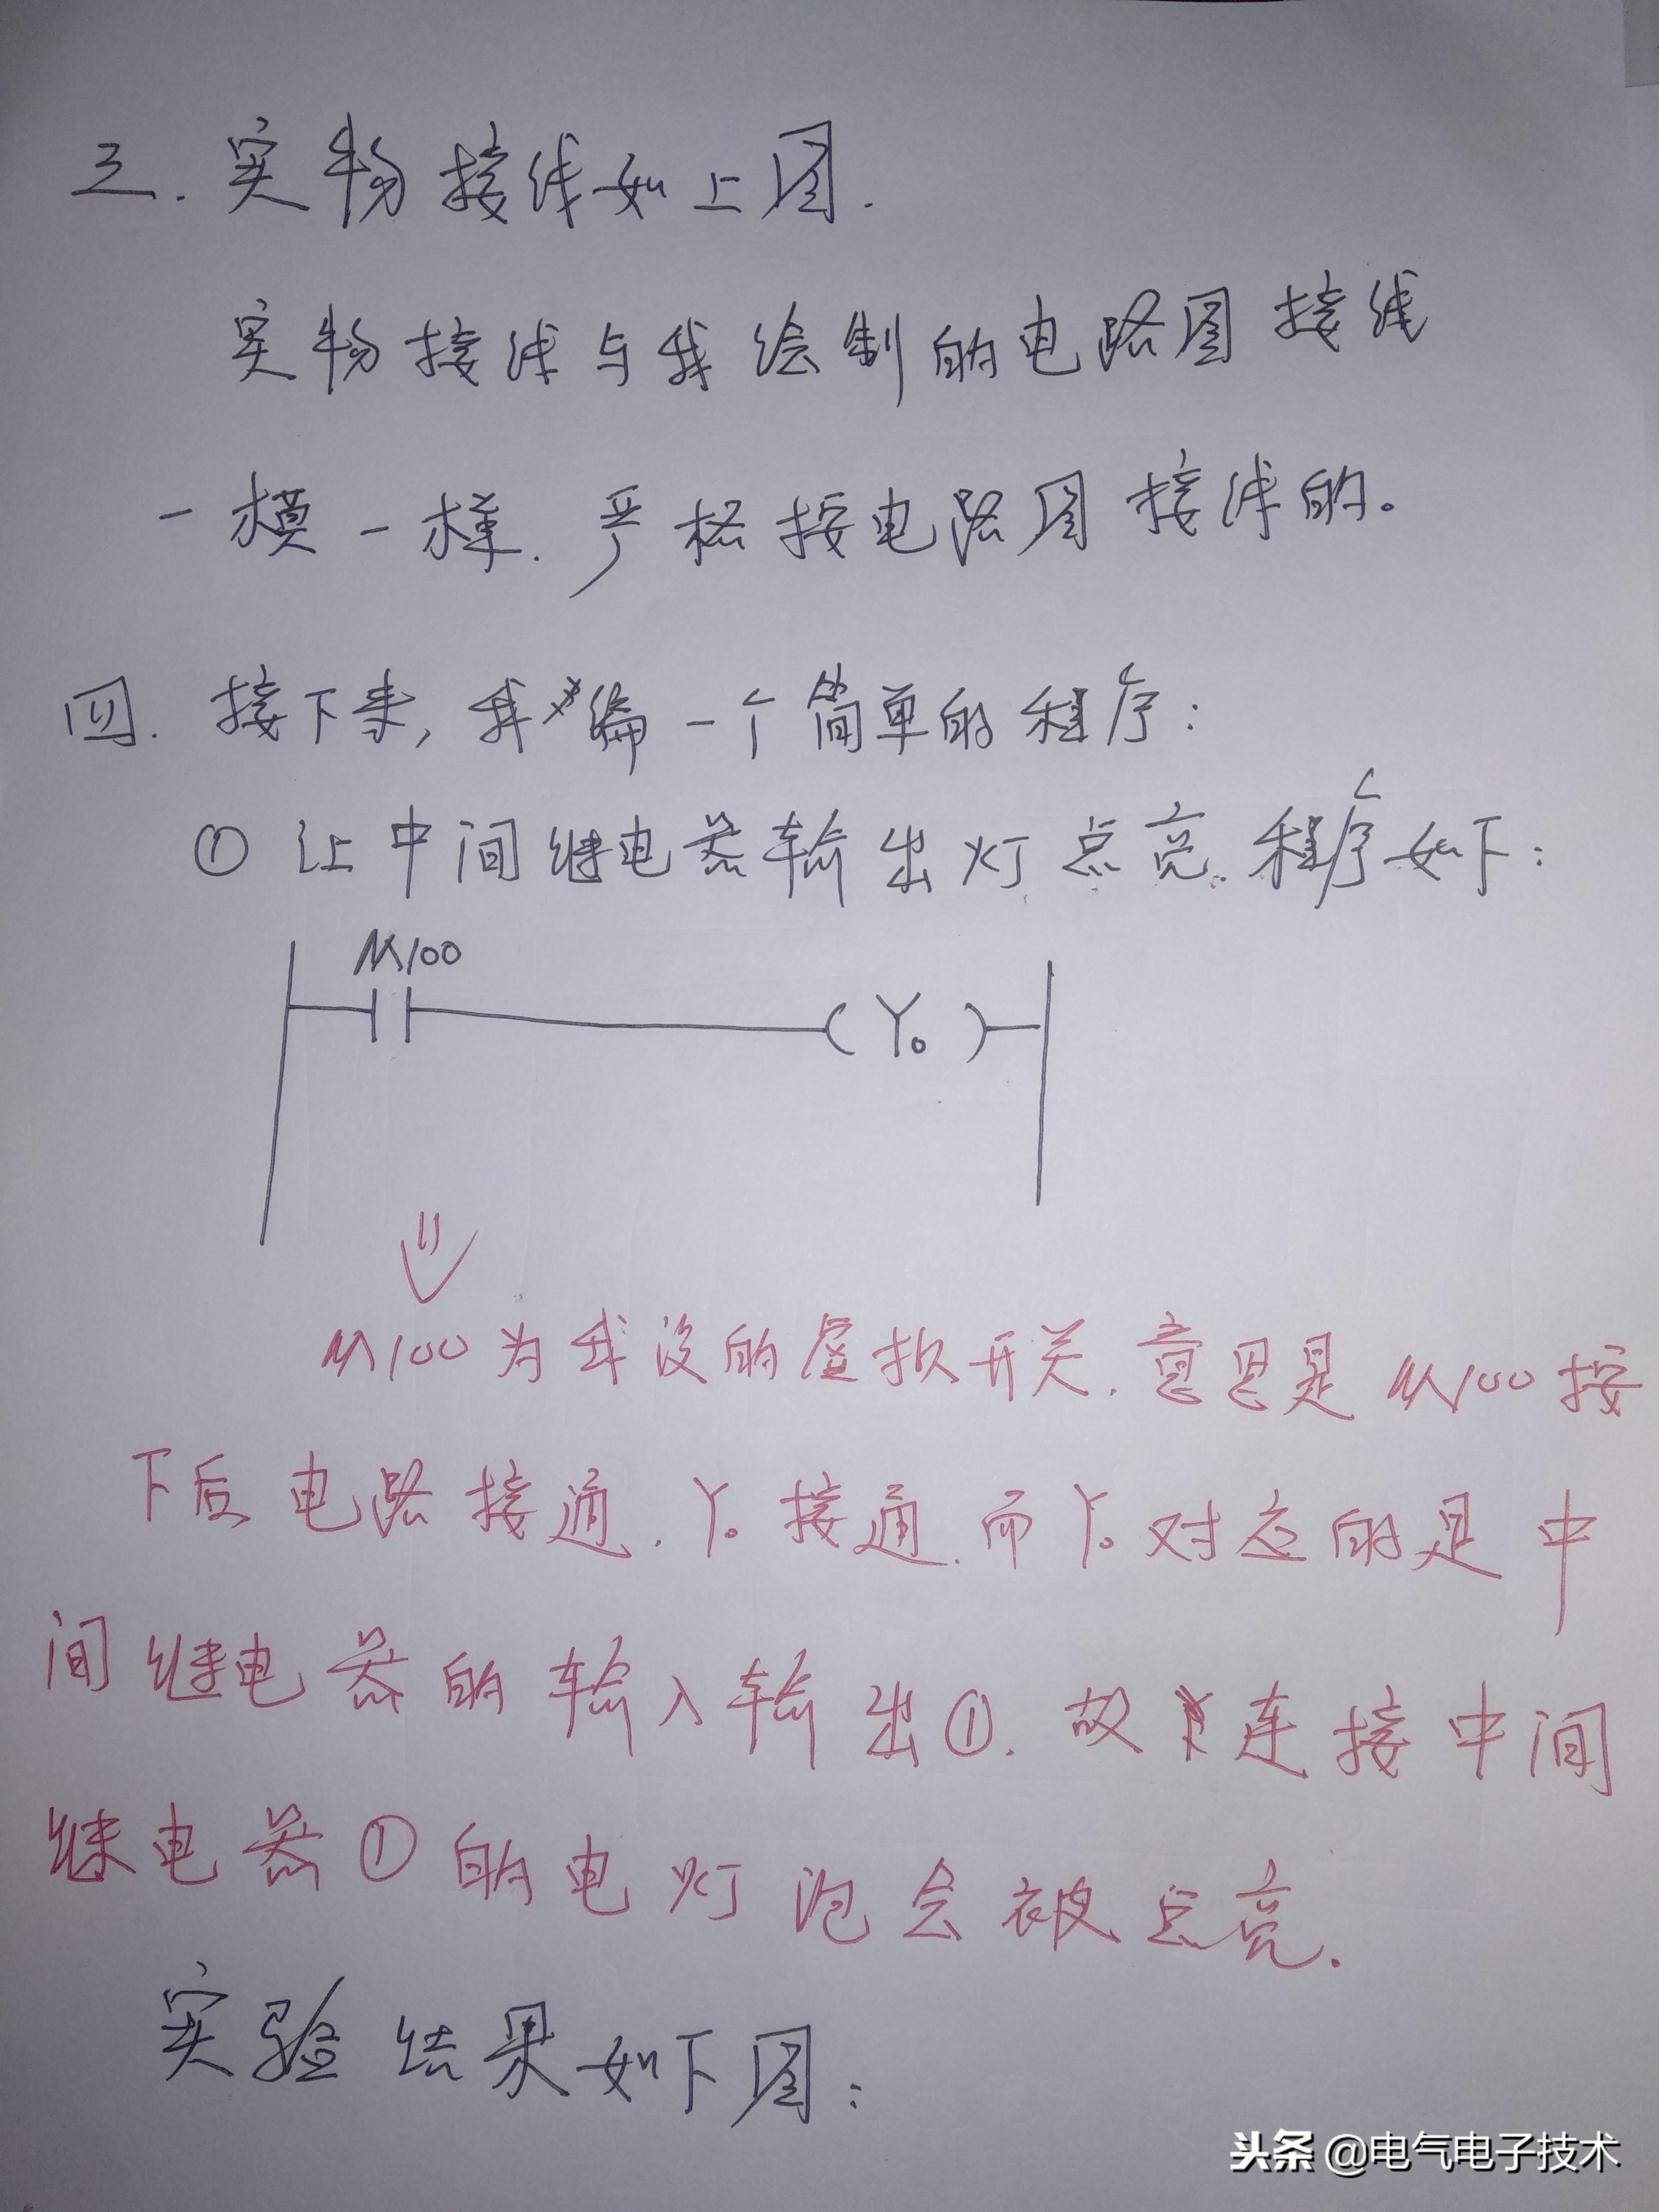 三.实物接线如上图.
实物接线与我绘制的电路图接线
一模一样.严格按电路图接线的。
四.接下来,我编一个简单的程序:
①让中间继电器输出灯点亮.程序如下:
M100
Y0
M100为我设的虚拟开关.意思是M100按
下后电路接通.Y0接通.而Y0对应的是中
间继电器的输入输出①.故连接中间
继电器①的电灯泡会被点亮.
实验结果如下图:
头条@电气电子技术